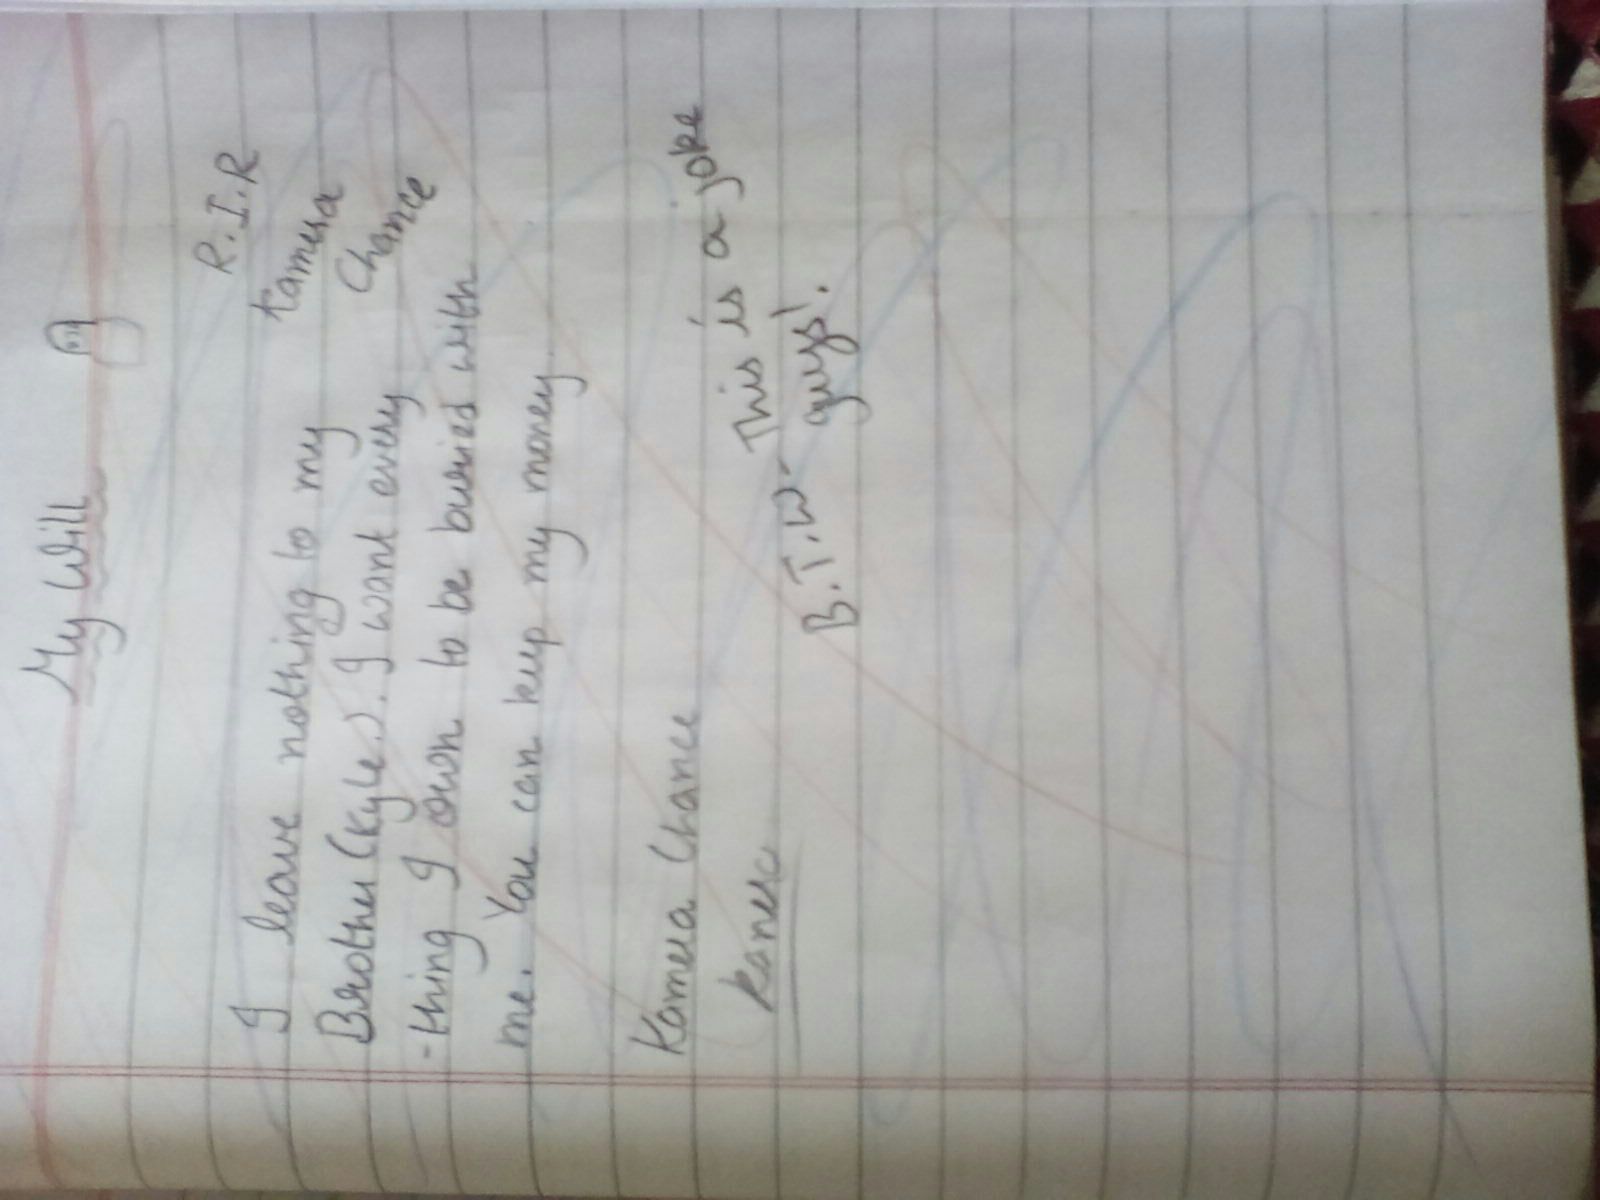 My Will
R.I.R
Kamera
Chance
I leave nothing to my
Brother (Kyle). I want every
-thing I own to be buried with
me. You can keep my money.
Kamera Chance
B.T.W- This is a joke
guys!.